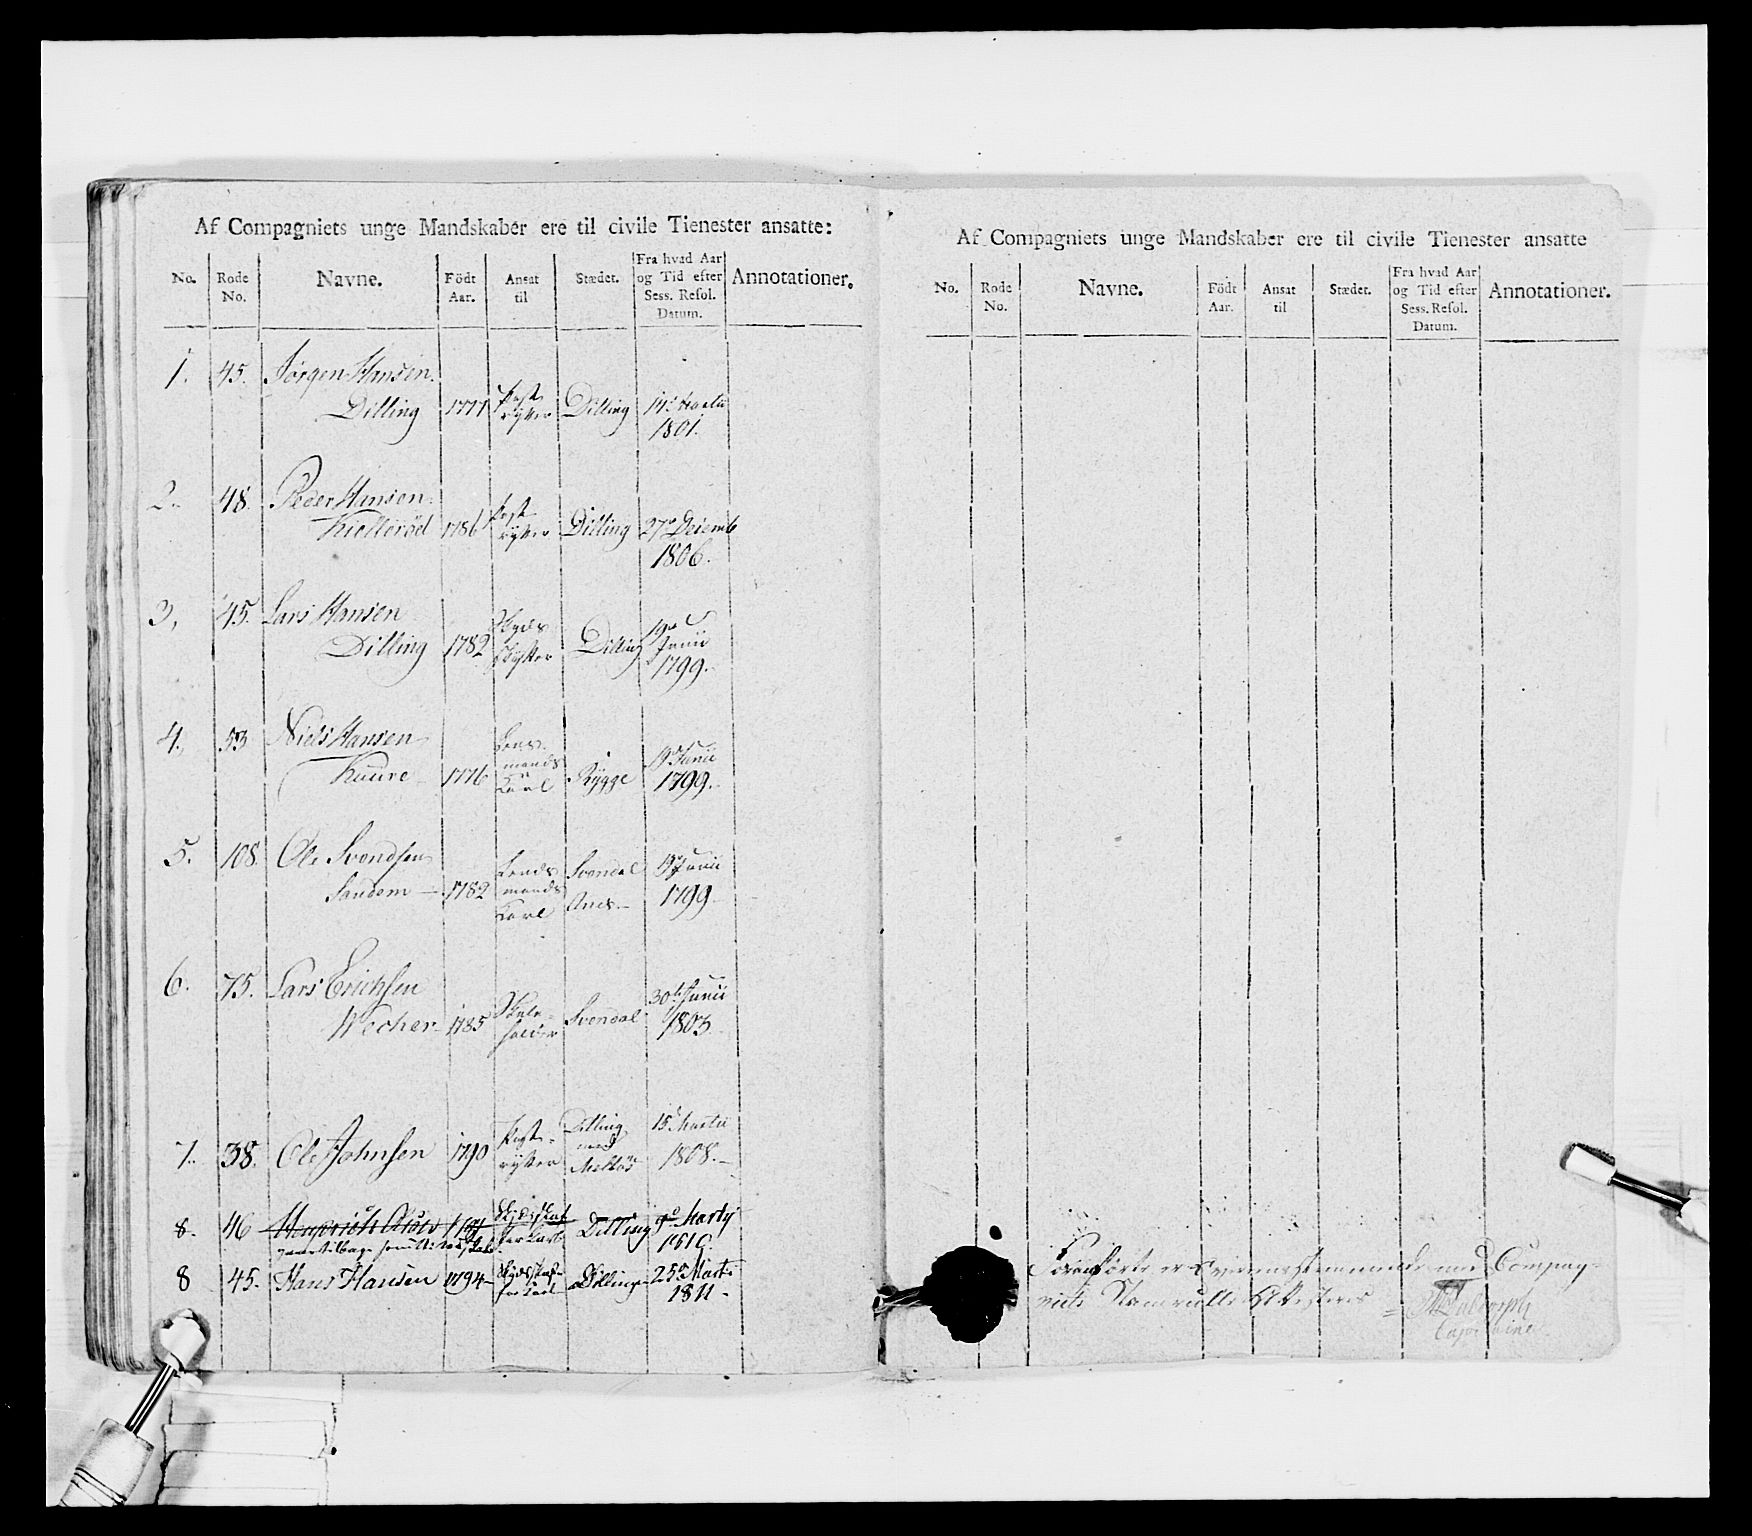 Af Compagniets unge Mandskaber ere til civile Tienester ansatte:
No. Rode No. Navne. Födt Aar. Ansat til Stædet. Fra hvad Aar og Tid efter Sess. Resol. Datum. Annotationer.
1. 45. Jørgen Hansen
Dilling 1777 Post rytter Dilling 14de Martii
1801.
2. 48. Peder Hansen
Kiellerød 1786 Post rytter Dilling 27de Decemb
1806.
3, 45. Lars Hansen
Dilling 1782 Skyds Skytter Dilling 19de Junii
1799.
4. 53 Niels Hansen
Kuure 1776 Lens mands Karl Rygge 19de Junii
1799.
5. 108. Ole Svendsen
Sandem 1782 Lends mands Karl Svendal 19de Junii
1799.
6. 75. Lars Erichsen
Wecher 1785 Skole holder Svendal 30te Junii
1803
7. 38. Ole Johnsen 1790 Post rytter Dilling med Melløs 15de Martii
1808.
8. 46 Dilling 9de Martij
1810
8 45. Hans Hansen 1794 Skydsskaffer Karl Dillinge 25de Marti
1811.
Af Compagniets unge Mandskaber ere til civile Tienester ansatte
No. Rode No. Navne. Födt Aar. Ansat til Stædet. Fra hvad Aar og Tid efter Sess. Resol. Datum. Annotationer.
Foranførte er Overeensstemmende med Compag-
niets Stamrulle Atesteres
Capitaine